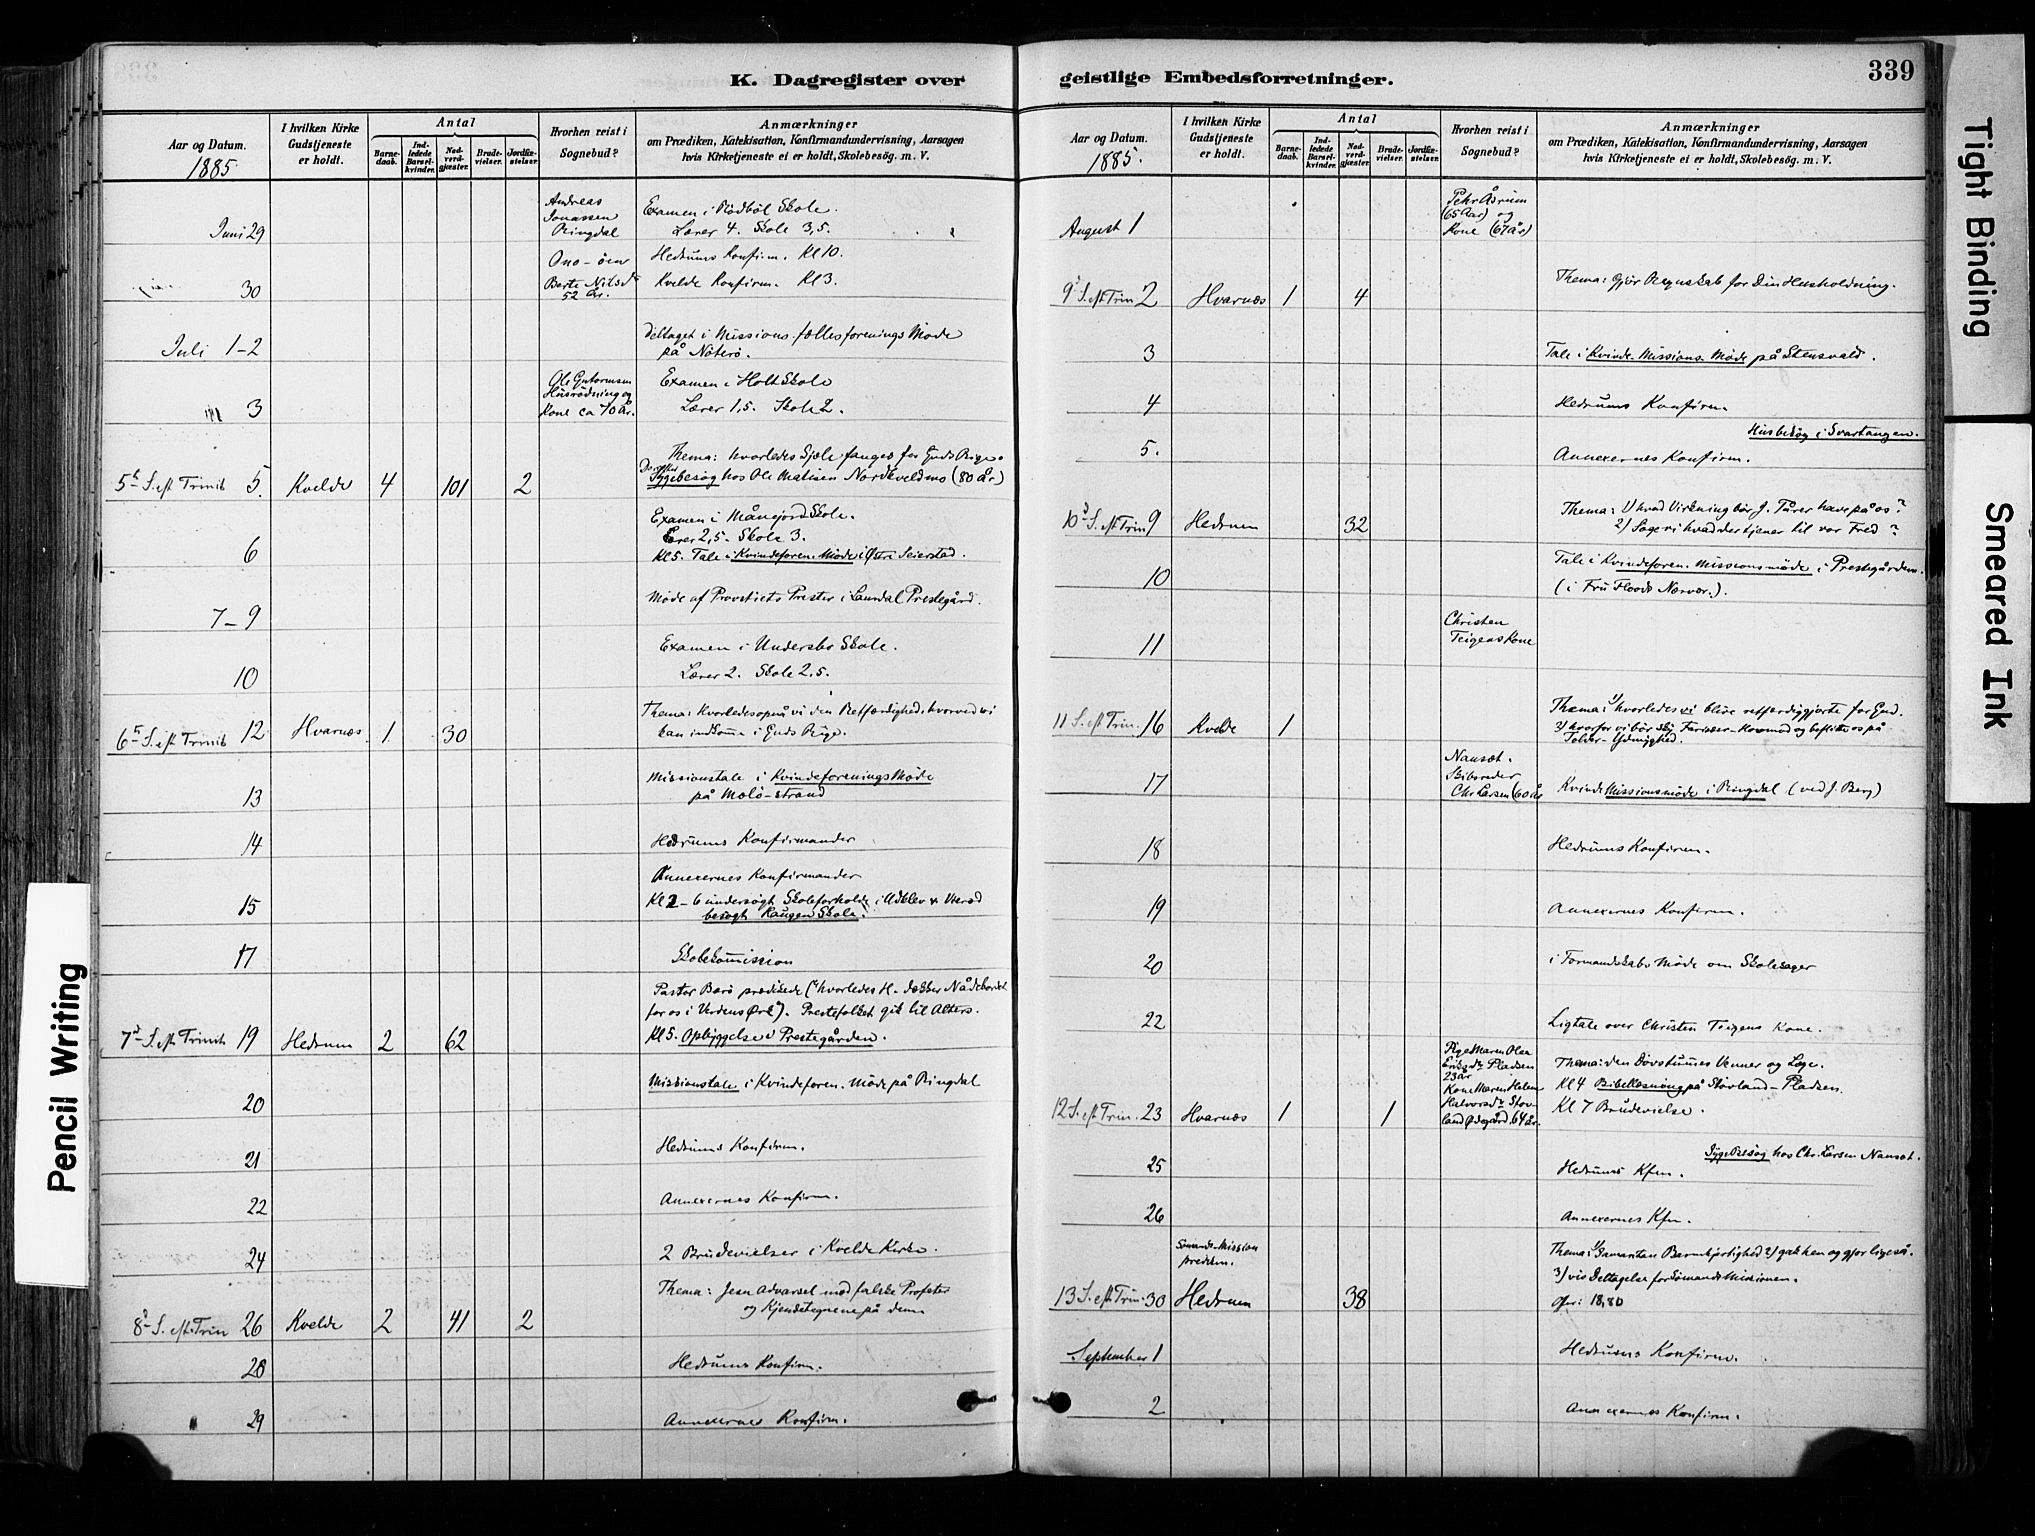 K. Dagregister over
Aar og Datum.
1885.
I hvilken Kirke
Gudstjeneste
er holdt.
Antal
Barne-
daab.
Ind-
ledede
Barsel-
kvinder.
Nad-
verd-
gjæster.
Brude-
vielser.
Jordfæ-
stelser.
Hvorhen reist i
Sognebud?
Anmærkninger
om Prædiken, Katekisation, Konfirmandundervisning, Aarsagen
hvis Kirketjeneste ei er holdt, Skolebesøg. m. V.
Juni 29
Andreas
Jonassen
Ringdal
Examen i Rødbøl Skole.
Lærer 4. Skole 3,5.
30
Ono-öen
Berte Nilsdr
52 år.
Hedrums Konfirm. Kl 10.
Kvelde Konfirm. Kl 3.
Juli 1-2
deltaget i Missions-fællesforenings Møde
på Nöterö.
3
Ole Gutormsen
Husrødning og
Kone ca 70 år.
Examen i Holt Skole
Lærer 1,5. Skole 2.
5t S. eft Trinit 5. Kvelde 4 101 2
Thema: hvorledes Sjæle fanges for Guds Rige.
Sygebesøg hos Ole Matisen Nordkveldmo (80 år)
6
Examen i Månejord Skole.
Lærer 2,5. Skole 3.
Kl 5. Tale i Kvindeforen. Møde i Østre Seierstad.
7-9
Møde af Provstiets Prester i Laurdal Prestegård.
10
Examen i Undersbo Skole.
Lærer 2. Skole 2,5.
6t S. eft Trinit 12 Hvarnæs. 1 30
Thema: Hvorledes opnå vi den Retfærdighed, hvorved vi
kan indkomme i Guds Rige.
13
Missionstale i Kvindeforenings Møde
på Melö-strand
14
Hedrums Konfirmander
15
Annexernes Konfirmander
Kl 2-6 undersøgt Skoleforholde i Odklev &
besøgt Haugen Skole.
17
Skolekommission
7d S. eft Trinit 19 Hedrum 2 62
Pastor Barö prædikede ("hvorledes H. dækker Nådebordet
for os i Verdens Ørk"). Prestefolket gik til Alters.
Kl 5. Opbyggelse i Prestegården.
20
Missionstale i Kvindeforen. Møde på Ringdal
21
Hedrums Konfirm.
22
Annexernes Konfirm.
24
2 Brudevielser i Kvelde Kirke.
8d S. eft. Trin 26 Kvelde 2 41 2
Thema: Jesu Advarsel mod falske Profeter
og Kjendetegnene på dem
28
Hedrums Konfirm.
29
Annexernes Konfirm.
geistlige Embedsforretninger.
339
Aar og Datum.
1885.
I hvilken Kirke
Gudstjeneste
er holdt.
Antal
Barne-
daab.
Ind-
ledede
Barsel-
kvinder.
Nad-
verd-
gjæster.
Brude-
vielser.
Jordfæ-
stelser.
Hvorhen reist i
Sognebud?
Anmærkninger
om Prædiken, Katekisation, Konfirmandundervisning, Aarsagen
hvis Kirketjeneste ei er holdt, Skolebesøg. m. V.
August 1
Pehr Åsrum
(65 Aar) og
Kone (67 år)
9d S. eft Trin 2 Hvarnæs 1 4
Thema: Gjör Regnskab for Din Husholdning.
3
Tale i Kvinde-Missions-Møde på Stensvold.
4
Hedrums Konfirm.
Husbesøg i Svartangen.
5.
Annexernes Konfirm.
10d S. eft Trin 9 Hedrum 32
Thema: 1) hvad Virkning bör J. Tårer have på os?
2) Søge vi hvad der tjener til vor Fred?
10
Tale i Kvindeforen. Missionsmøde i Prestegården.
(i Fru Floods Nærvær.).
11
Christen
Teigens Kone
11 S. eft Trin. 16 Kvelde 1
Thema: 1) hvorledes vi blive retfærdiggjorte for Gud.
2) hvorfor vi bør sky Farisæer-Hovmod og beflitte os på
Tolder-Ydmyghed.
17
Nansæt.
Skibsreder
Chr Larsen (60 år
Kvinde Missionsmøde i Ringdal (ved J. Berg)
18
Hedrums Konfirm.
19
Annexernes Konfirm.
20
i Formandskabs Møde om Skolesager
22
Ligtale over Christen Teigens Kone.
12 S. eft Trin. 23 Hvarnæs 1 1
Pige Maren Olea
Eriksdr Pladsen
23 år
Kone Maren Helene
Halvorsdr Stov-
land Ødegård, 64 år.
Thema: den Døvstummes Venner og Læge.
Kl 4 Bibellæsning på Stovland-Pladsen.
Kl 7 Brudevielse.
25
Sygebesøg hos Chr. Larsen Nansæt.
Hedrums Kfm.
26
Annexernes Kfm.
Sömands-Mission
prediken.
13 S. eft Trin. 30 Hedrum 38
Thema: 1) Samaritan Barmhjertighed 2) gak hen og gjør ligeså.
3) vis Deltagelse for Sömands Missionen.
Ofer: 18,80
September 1
Hedrums Konfirm.
2
Annexernes Konfirm.
Tight Binding
Smeared Ink
Pencil Writing